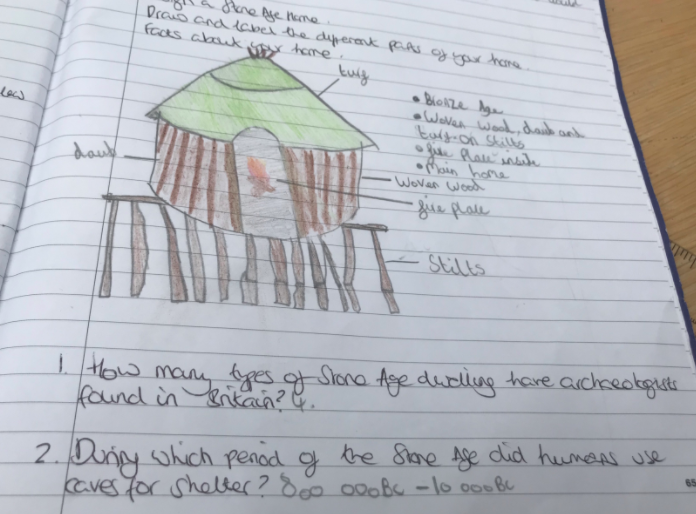 a Stone Age Home.
Draw and label the different parts of your home.
Facts about your home.
turf
• Bronze Age
• Woven wood, daub and
turf-on stilts
• fire place inside
• Main home
daub
Woven wood
fire place
Stilts
1. How many types of Stone Age dwelling have archaeologists
found in Britain? 4.
2. During which period of the Stone Age did humans use
caves for shelter? 800 000BC - 10 000BC